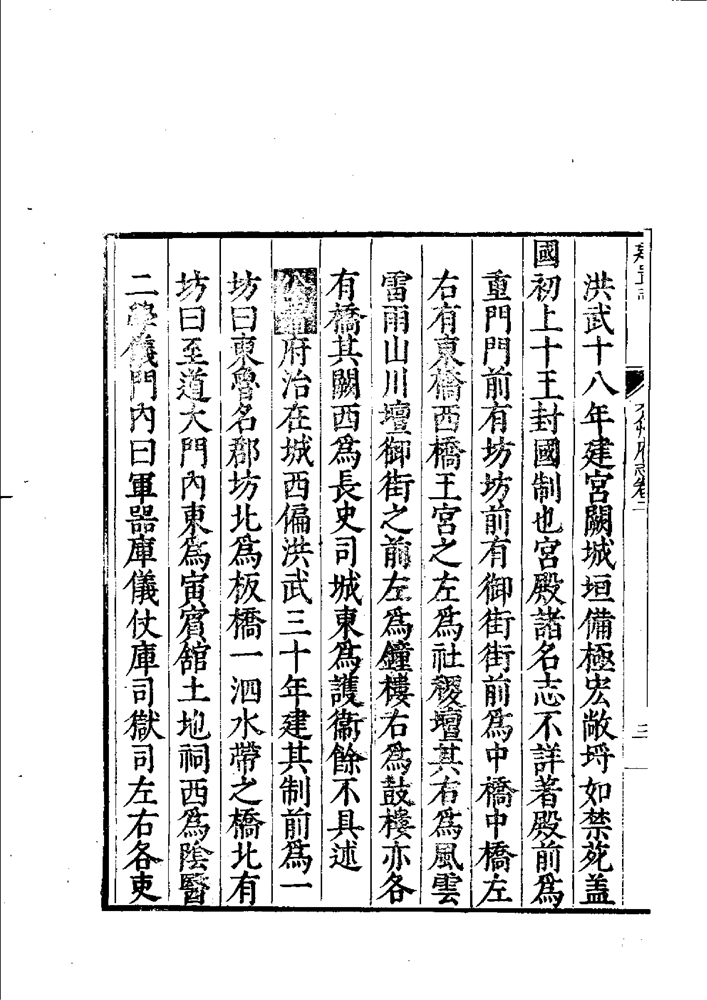 兗州府志卷二
三
洪武十八年建宮闕城垣備極宏敞埒如禁苑盖
國初上十王封國制也宮殿諸名志不詳著殿前為
重門門前有坊坊前有御街街前為中橋中橋左
右有東橋西橋王宮之左為社稷壇其右為風雲
雷雨山川壇御街之前左為鐘樓右為鼓樓亦各
有橋其闕西為長史司城東為護衞餘不具述
府治在城西偏洪武三十年建其制前為一
坊曰東魯名郡坊北為板橋一泗水帶之橋北有
坊曰至道大門內東為寅賓舘土地祠西為陰醫
二學儀門內曰軍器庫儀仗庫司獄司左右各吏